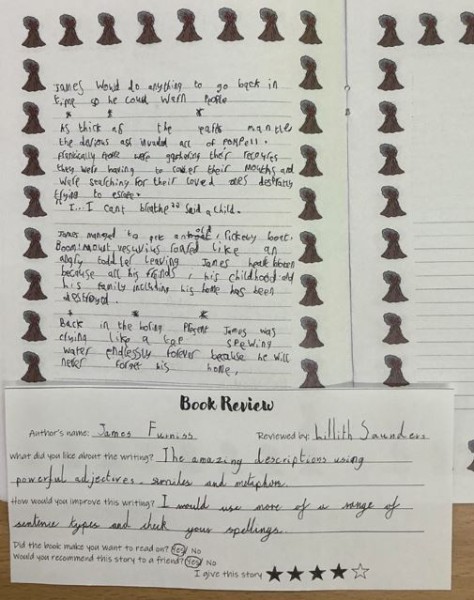 James Woud do anything to go back in
time so he could Warn People
* * *
As thick as the earths mantle
the devious ash invaded all of Pompeii.
frantically People were gathering their
they were having to cover their mouths and
were searching for their loved ones
trying to escape.
"I.. I cant breathe" said a child.
James managed to get an old, rickety boat.
Boom! mount vesuvius roared like an
angry toddler leaving James heart broken
because all his friends, his childhood and
his family including his home has been
destroyed.
* * *
Back in the boring Present James was
crying like a tap spewing
water endlessly forever because he will
never forget his home.
Book Review
Author's name: James Furniss Reviewed by: Lillith Saunders
What did you like about the writing? The amazing descriptions using
powerful adjectives, similes and metaphors.
How would you improve this writing? I would use more of a range of
sentence types and check your spellings.
Did the book make you want to read on? Yes/ No
Would you recommend this story to a friend? Yes/ No
I give this story